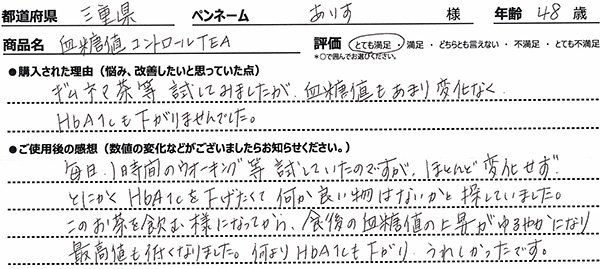 都道府県 三重県 ペンネーム ありす 様 年齢 48 歳
商品名 血糖値コントロールTEA 評価 とても満足・満足・どちらとも言えない・不満足・とても不満足
*○で囲んでお選びください。
●購入された理由（悩み、改善したいと思っていた点）
ギムネマ茶等 試してみましたが、血糖値もあまり変化なく
HbA1cも下がりませんでした。
●ご使用後の感想（数値の変化などがございましたらお知らせください。）
毎日、1時間のウオーキング等 試していたのですが、ほとんど変化せず
とにかくHbA1cを下げたくて 何か良い物はないかと探していました。
このお茶を飲む様になってから、食後の血糖値の上昇がゆるやかになり
最高値も低くなりました。何よりHbA1cも下がり、うれしかったです。